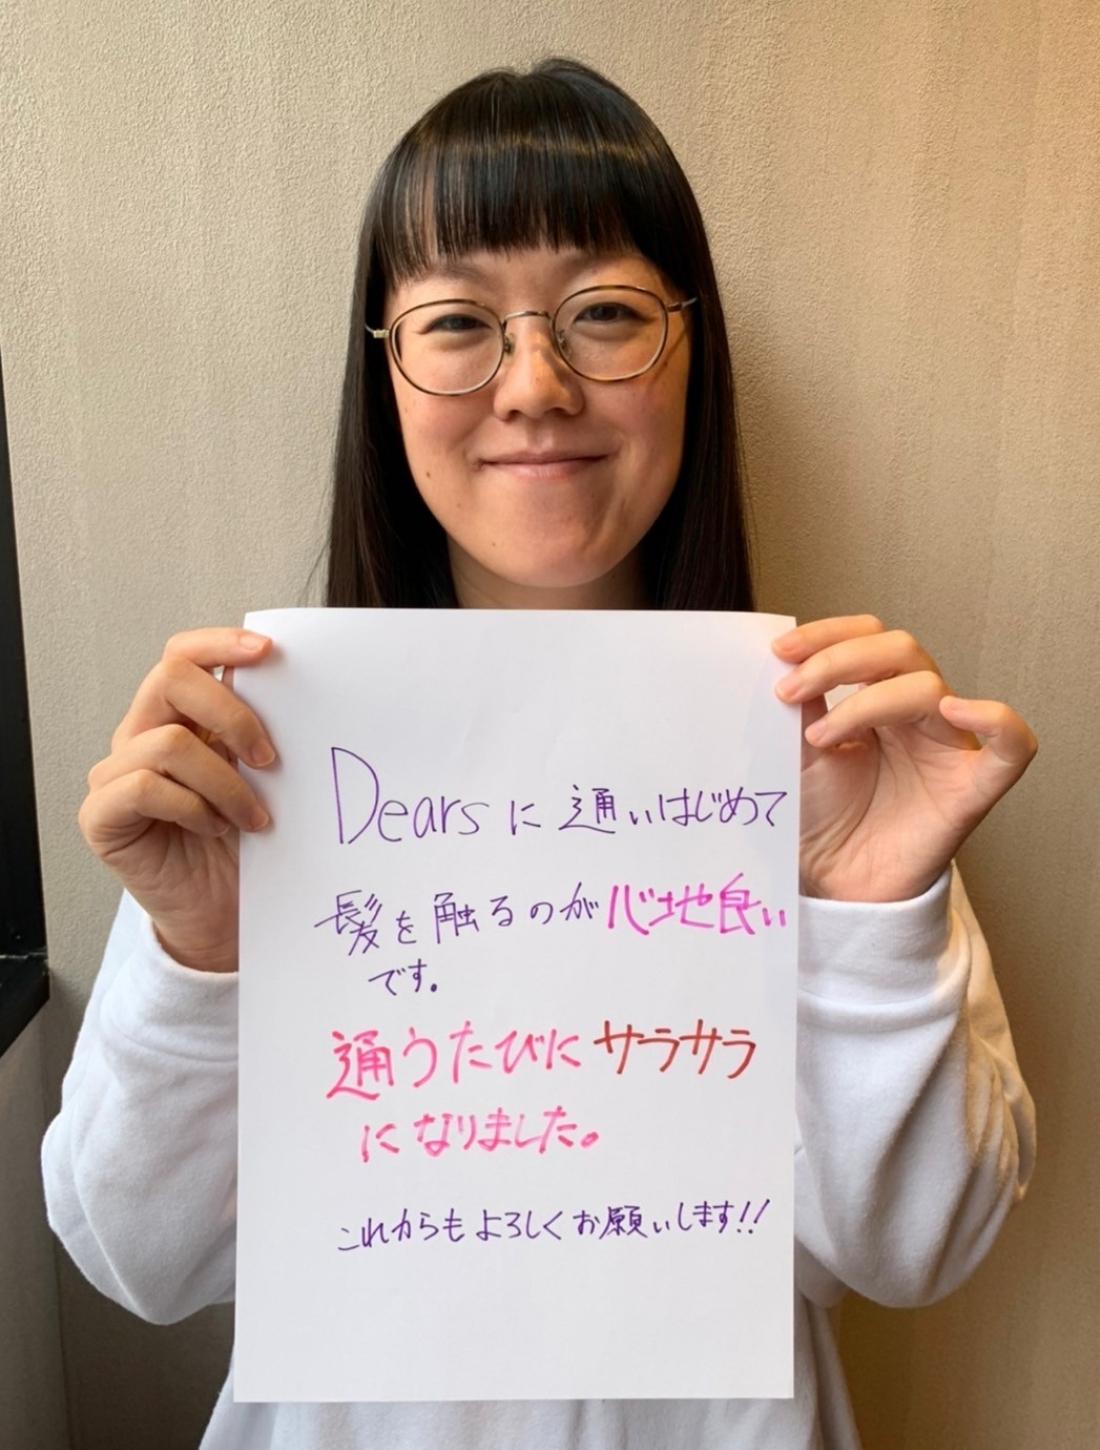 Dearsに通いはじめて
髪を触るのが心地良い
です。
通うたびにサラサラ
になりました。
これからもよろしくお願いします!!